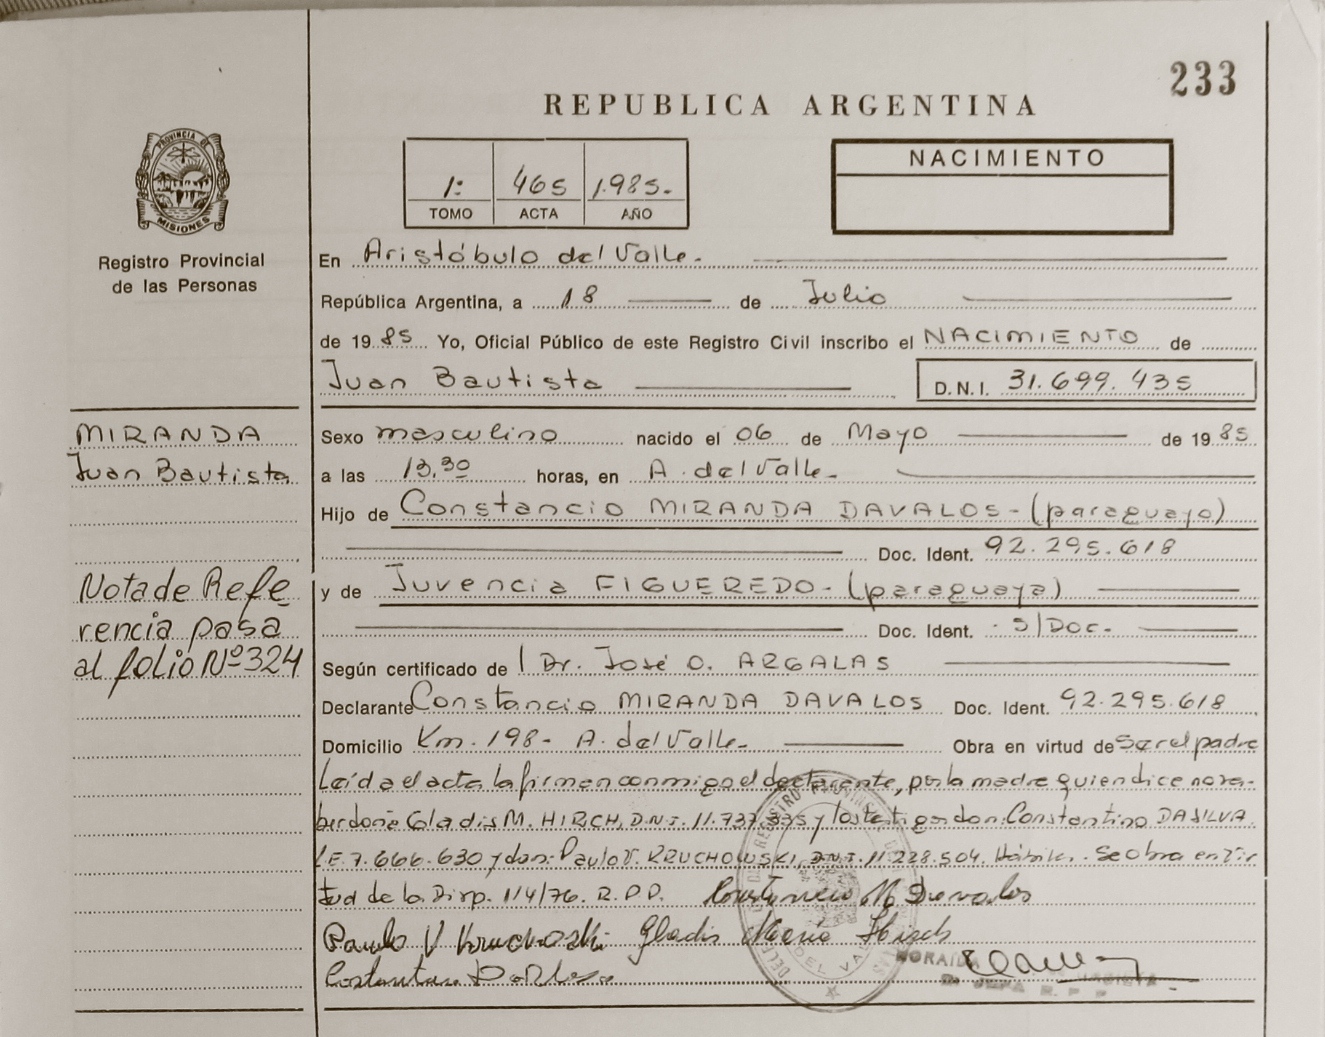 233
REPUBLICA ARGENTINA
PROVINCIA DE
MISIONES
Registro Provincial
de las Personas
1: 465 1.985.-
TOMO ACTA AÑO
NACIMIENTO
En Aristóbulo del Valle.-
República Argentina, a 18 de Julio
de 1985 Yo, Oficial Público de este Registro Civil inscribo el NACIMIENTO de
Juan Bautista D.N.I. 31.699.435
MIRANDA
Juan Bautista
Sexo masculino nacido el 06 de Mayo de 1985
a las 13,30 horas, en A. del Valle.-
Hijo de Constancio MIRANDA DAVALOS-(paraguayo)
Doc. Ident. 92.295.618
Nota de Refe
rencia pasa
al folio Nº 324
y de Juvencia FIGUEREDO-(paraguaya)
Doc. Ident. S/Doc.-
Según certificado de Dr. José O. ARGALAS
Declarante Constancio MIRANDA DAVALOS Doc. Ident. 92.295.618
Domicilio Km. 198- A. del Valle.- Obra en virtud de Ser el padre
Leída el acta la firman conmigo el declarante, por la madre quien dice no sa-
ber doña Gladis M. HIRCH, D.N.I. 11. y los testigos don: Constantino DA SILVA
L.E. 7.666.630 y don: Paulo V. KRUCHOWSKI, D.N.I. 11.228.504. Se obra en vir
tud de la Disp. 114/76. R.P.P. Constancio M Davalos
Paulo V Gladis María Hirch
DEL VALLE
R. P. P.